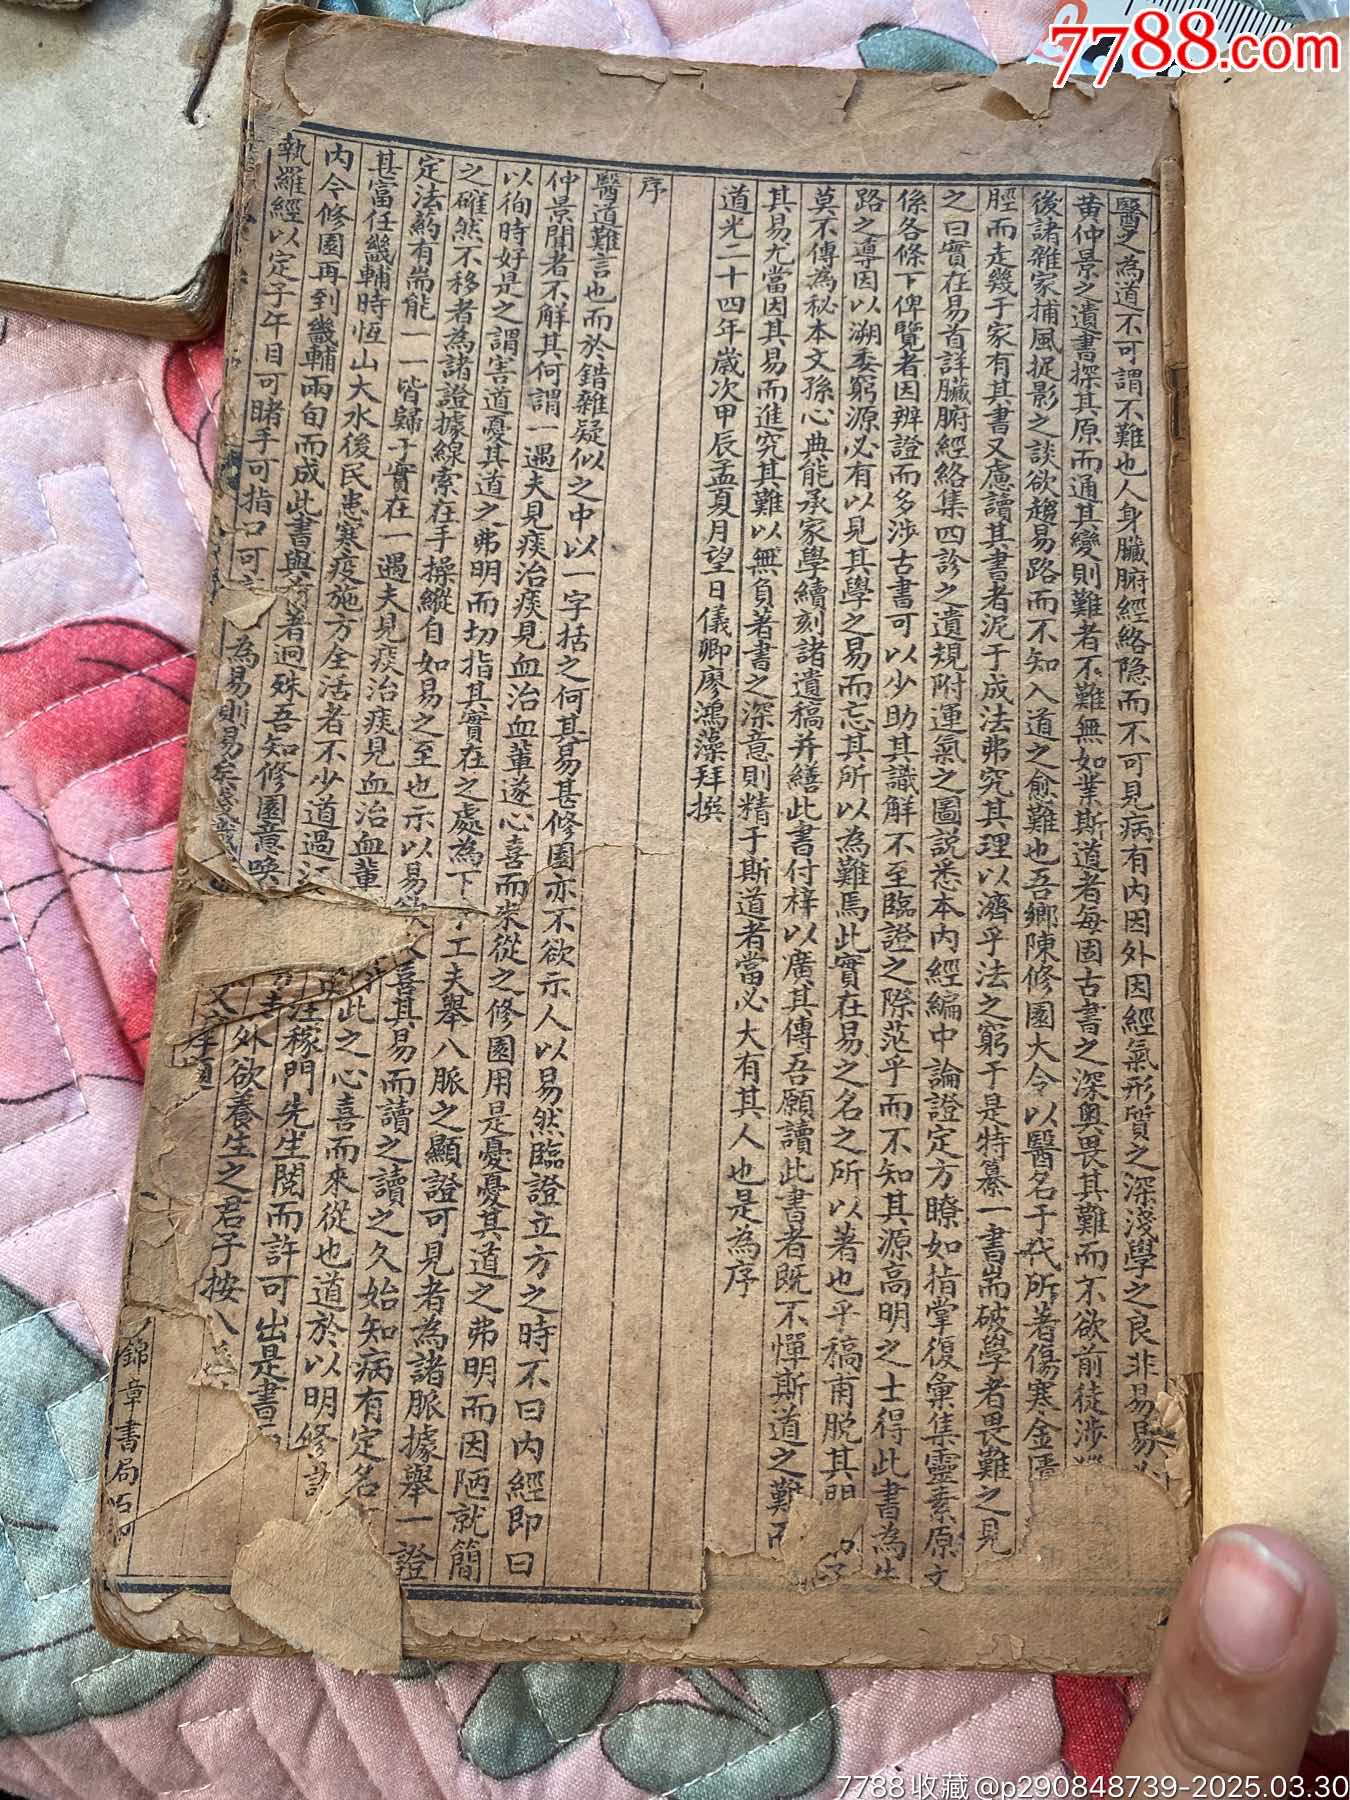 醫之為道不可謂不難也人身臟腑經絡隐而不可見病有內因外因經氣形質之深淺學之良非易易
黄仲景之遺書探其原而通其變則難者不難無如業斯道者每固古書之深奧畏其難而不欲前徒涉
後諸雜家捕風捉影之談欲趨易路而不知入道之愈難也吾鄉陳修園大令以醫名于代所著傷寒金匱
脛而走幾于家有其書又慮讀其書者泥于成法弗究其理以濟乎法之窮于是特纂一書耑破學者畏難之見
之曰實在易首詳臟腑經絡集四診之遺規附運氣之圖説悉本內經編中論證定方瞭如指掌復彙集靈素原文
係各條下俾覽者因辨證而多涉古書可以少助其識解不至臨證之際茫乎而不知其源高明之士得此書為
路之導因以溯委窮源必有以見其學之易而忘其所以為難焉此實在易之名之所以著也乎稿甫脱其
莫不傳為秘本文孫心典能承家學續刻諸遺稿并繕此書付梓以廣其傳吾願讀此書者既不憚斯道之難
其易尤當因其易而進究其難以無負著書之深意則精于斯道者當必大有其人也是為序
道光二十四年歲次甲辰孟夏月望日儀卿廖鴻藻拜撰
序
醫道難言也而於錯雜疑似之中以一字括之何其易甚修園亦不欲示人以易然臨證立方之時不曰內經即曰
仲景聞者不解其何謂一遇夫見痰治痰見血治血輩遂心喜而來從之修園用是憂憂其道之弗明而因陋就簡
以徇時好是之謂害道憂其道之弗明而切指其實在之處為下手工夫舉八脈之顯證可見者為諸脈據舉一證
之確然不移者為諸證據線索在手操縱自如易之至也示以易欲人喜其易而讀之讀之久始知病有定名
定法藥有耑能一一皆歸于實在一遇夫見痰治痰見血治血輩此之心喜而來從也道於以明修
其富任畿輔時恆山大水後民患寒疫施方全活者不少道過注稼門先生閱而許可出是書
內令修園再到畿輔兩旬而成此書與著迥殊吾知修園意喚外欲養生之君子按八
執羅經以定子午目可睹手可指口可為易則易矣
錦章書局石
7788.com
7788收藏@p290848739-2025.03.30